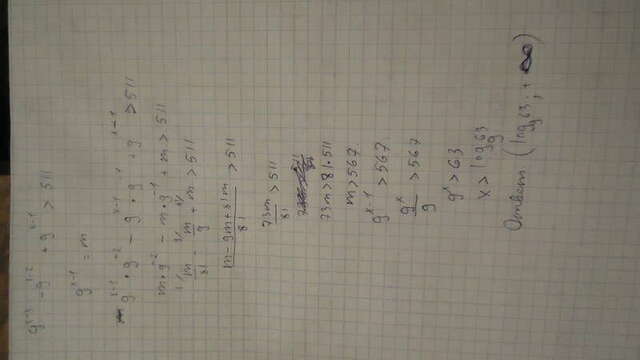 9^{x-3} - 9^{x-2} + 9^{x-1} > 511
9^{x-1} = m
9^{x-1} · 9^{-2} - 9^{x-1} · 9^{-1} + 9^{x-1} > 511
m · 9^{-2} - m · 9^{-1} + m > 511
m/81 - m/9 + m > 511
(m - 9m + 81m)/81 > 511
73m/81 > 511
73m > 81 · 511
m > 567
9^{x-1} > 567
9^x/9 > 567
9^x > 63
x > log 63
Ответ (log_9 63; +∞)